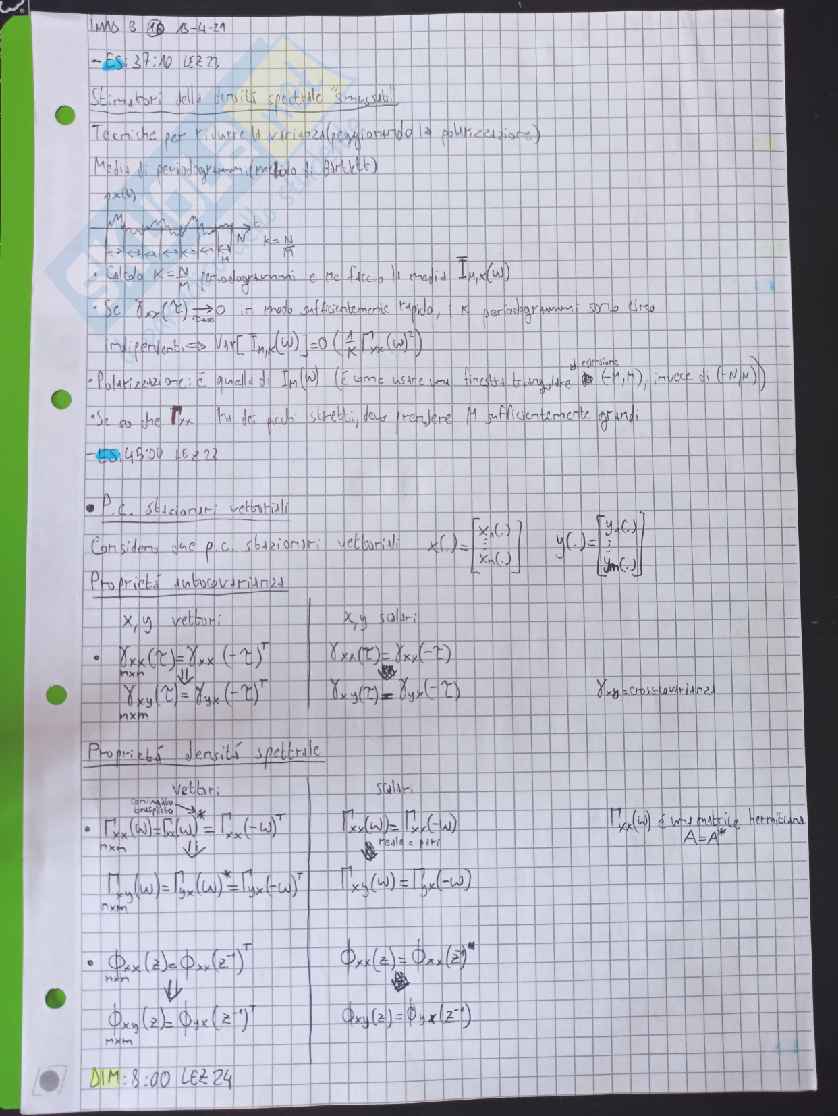 IMAD 3 16 13-4-21
- ES: 37:10 LEZ 22
Stimatori della densità spettrale "smussati"
Tecniche per ridurre la varianza (peggiorando la polarizzazione)
Media di periodogrammi (metodo di Bartlett)
N K=N/M
M
• Calcolo K=N/M periodogrammi e ne faccio la media I̅M,K(ω)
• Se γxx(τ) → 0 in modo sufficientemente rapido, i K periodogrammi sono circa
τ→∞
indipendenti ⇒ Var[I̅M,K(ω)]=O(1/K Γxx(ω)²)
• Polarizzazione: è quella di IM(ω) (È come usare una finestra triangolare di estensione (-M,M), invece di (-N,N))
• Se so che Γxx ha dei picchi stretti, devo prendere M sufficientemente grandi
- ES: 45:04 LEZ 22
• P.c. stazionari vettoriali
Considero due p.c. stazionari vettoriali x(.)=[x₁(.) ⋮ xn(.)] y(.)=[y₁(.) ⋮ ym(.)]
Proprietà autocovarianza
x, y vettori x, y scalari
• γxx(τ)=γxx(-τ)ᵀ γxx(τ)=γxx(-τ)
n×n ⇓ ⇓
γxy(τ)=γyx(-τ)ᵀ γxy(τ)=γyx(-τ) γxy=cross-covarianza
n×m
Proprietà densità spettrale
vettori scalari
coniugato trasposto
• Γxx(ω)=Γxx(ω)*=Γxx(-ω)ᵀ Γxx(ω)=Γxx(-ω) Γxx(ω) è una matrice hermitiana
n×n ⇓ reale e pari A=A*
Γxy(ω)=Γyx(ω)*=Γyx(-ω)ᵀ Γxy(ω)=Γyx(-ω)
n×m
• ϕxx(z)=ϕxx(z⁻¹)ᵀ ϕxx(z)=ϕxx(z⁻¹)
n×n ⇓ ⇓
ϕxy(z)=ϕyx(z⁻¹)ᵀ ϕxy(z)=ϕyx(z⁻¹)
n×m
DIM: 8:00 LEZ 24